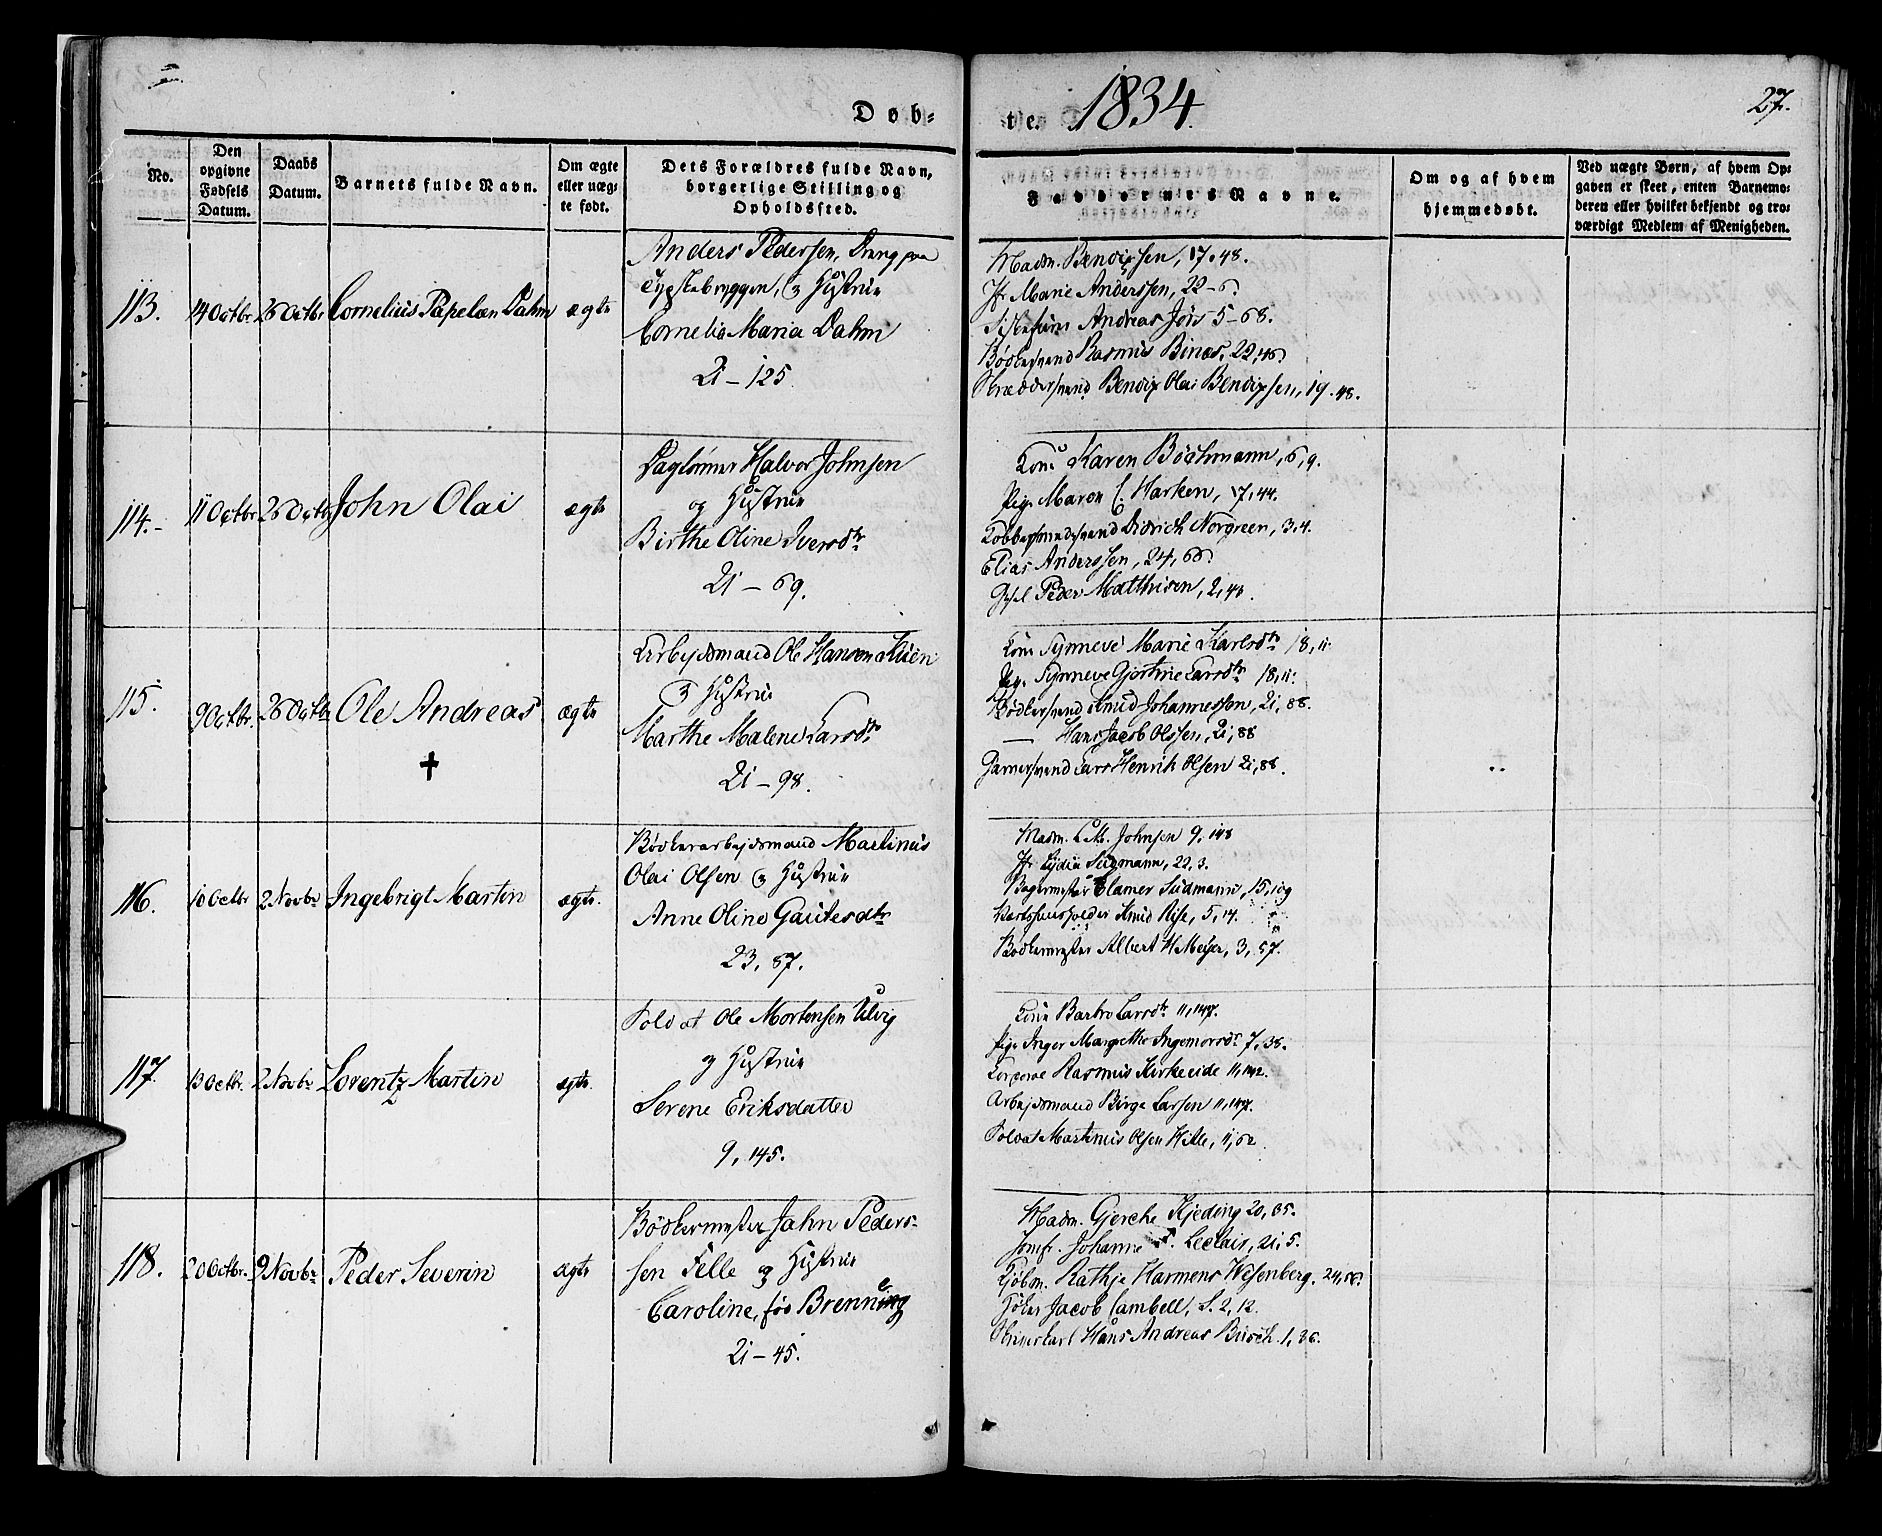 Døb-
te. 1834.
27.
No.
Den opgivne Fødsels Datum.
Daabs Datum.
Barnets fulde Navn.
Om ægte eller uæg-
te født.
Dets Forældres fulde Navn,
borgerlige Stilling og
Opholdssted.
Faddernes Navne.
Om og af hvem
hjemmedøbt.
Ved uægte Børn, af hvem Op-
gaven er skeet, enten Barnemo-
deren eller hvilket bekjendt og tro-
værdigt Medlem af Menigheden.
113.
14 Octbr
26 Octbr
Cornelius Dahm
ægte
Anders Pedersen, Dreng paa
Tydskebryggen, og Hustrue
Cornelia Maria Dahm
21 - 125.
Madm. Bendixsen, 17, 48.
Jfr Marie Anderssen, 22 - 6.
Andreas 5 - 68.
Bødkersvend Rasmus 22, 46.
Skræddersvend Bendix Olai Bendixsen, 19. 48.
114.-
11 Octbr
26 Octbr
John Olai
ægte
Daglønner Halvor Johnsen
og Hustrue
Birthe Oline Iversdtr
21 - 69.
Kone Karen Bøchmann, 6, 9.
Pige Maren C. Harken, 17, 44.
Kobbersmedsvend Didrich Norgreen, 3, 4.
Elias Anderssen, 24, 66.
Peder Matthisen, 2, 43.
115.
9 Octbr.
26 Octbr
Ole Andreas
✝
ægte
Arbejdsmand Ole Hansen
og Hustrue
Marthe Malene Larsdtr
21 - 98.
Kone Synneve Marie Karlsdtr 18, 11.
Pige Synneve Gjertine Larsdtr 18, 11.
Bødkersvend Knud Johannessen, 21, 88.
— Hans Jacob Olssen, 21, 88
Garversvend Lars Henrik Olsen 21, 88.
116.
10 Octbr
2 Novbr
Ingebrigt Martin
ægte.
Bødkerarbejdsmand Martinus
Olai Olsen og Hustrue
Anne Oline Gautesdtr
23, 87.
Madm. Johnsen 9, 148
Jfr Lydia Südmann, 22, 3.
Bagermester Clamer Südmann, 15, 109
Vertshuusholder Knud Rise, 5, 14.
Bødkermester Albert H Meyer, 3, 57.
117.
13 Octbr.
2 Novbr
Lorentz Martin
ægte.
Soldat Ole Mortensen Ulvig
og Hustrue
Serene Eriksdatter
9, 145.
Kone Larsdtr 11, 147.
Pige Inger Margrethe Ingemorsdtr 7, 38.
Corporal Rasmus Kirkeeide 11, 142.
Arbejdsmand Birge Larsen 11, 147.
Soldat Martinus Olsen Hille, 11, 62.
118.
20 Octbr.
9 Novbr
Peder Severin
ægte
Bødkermester Jahn Peders-
sen Felle og Hustrue
Caroline, fød Brenning
21 - 45.
Madm. Gerche Kjeding 20, 85.
Jomfr. Johanne Leclair, 21, 5.
Kjøbm. Rathje Harmens Wesenberg. 24, 56.
Jacob Cambell, S. 2, 12.
Hans Andreas Busch. 1, 36.